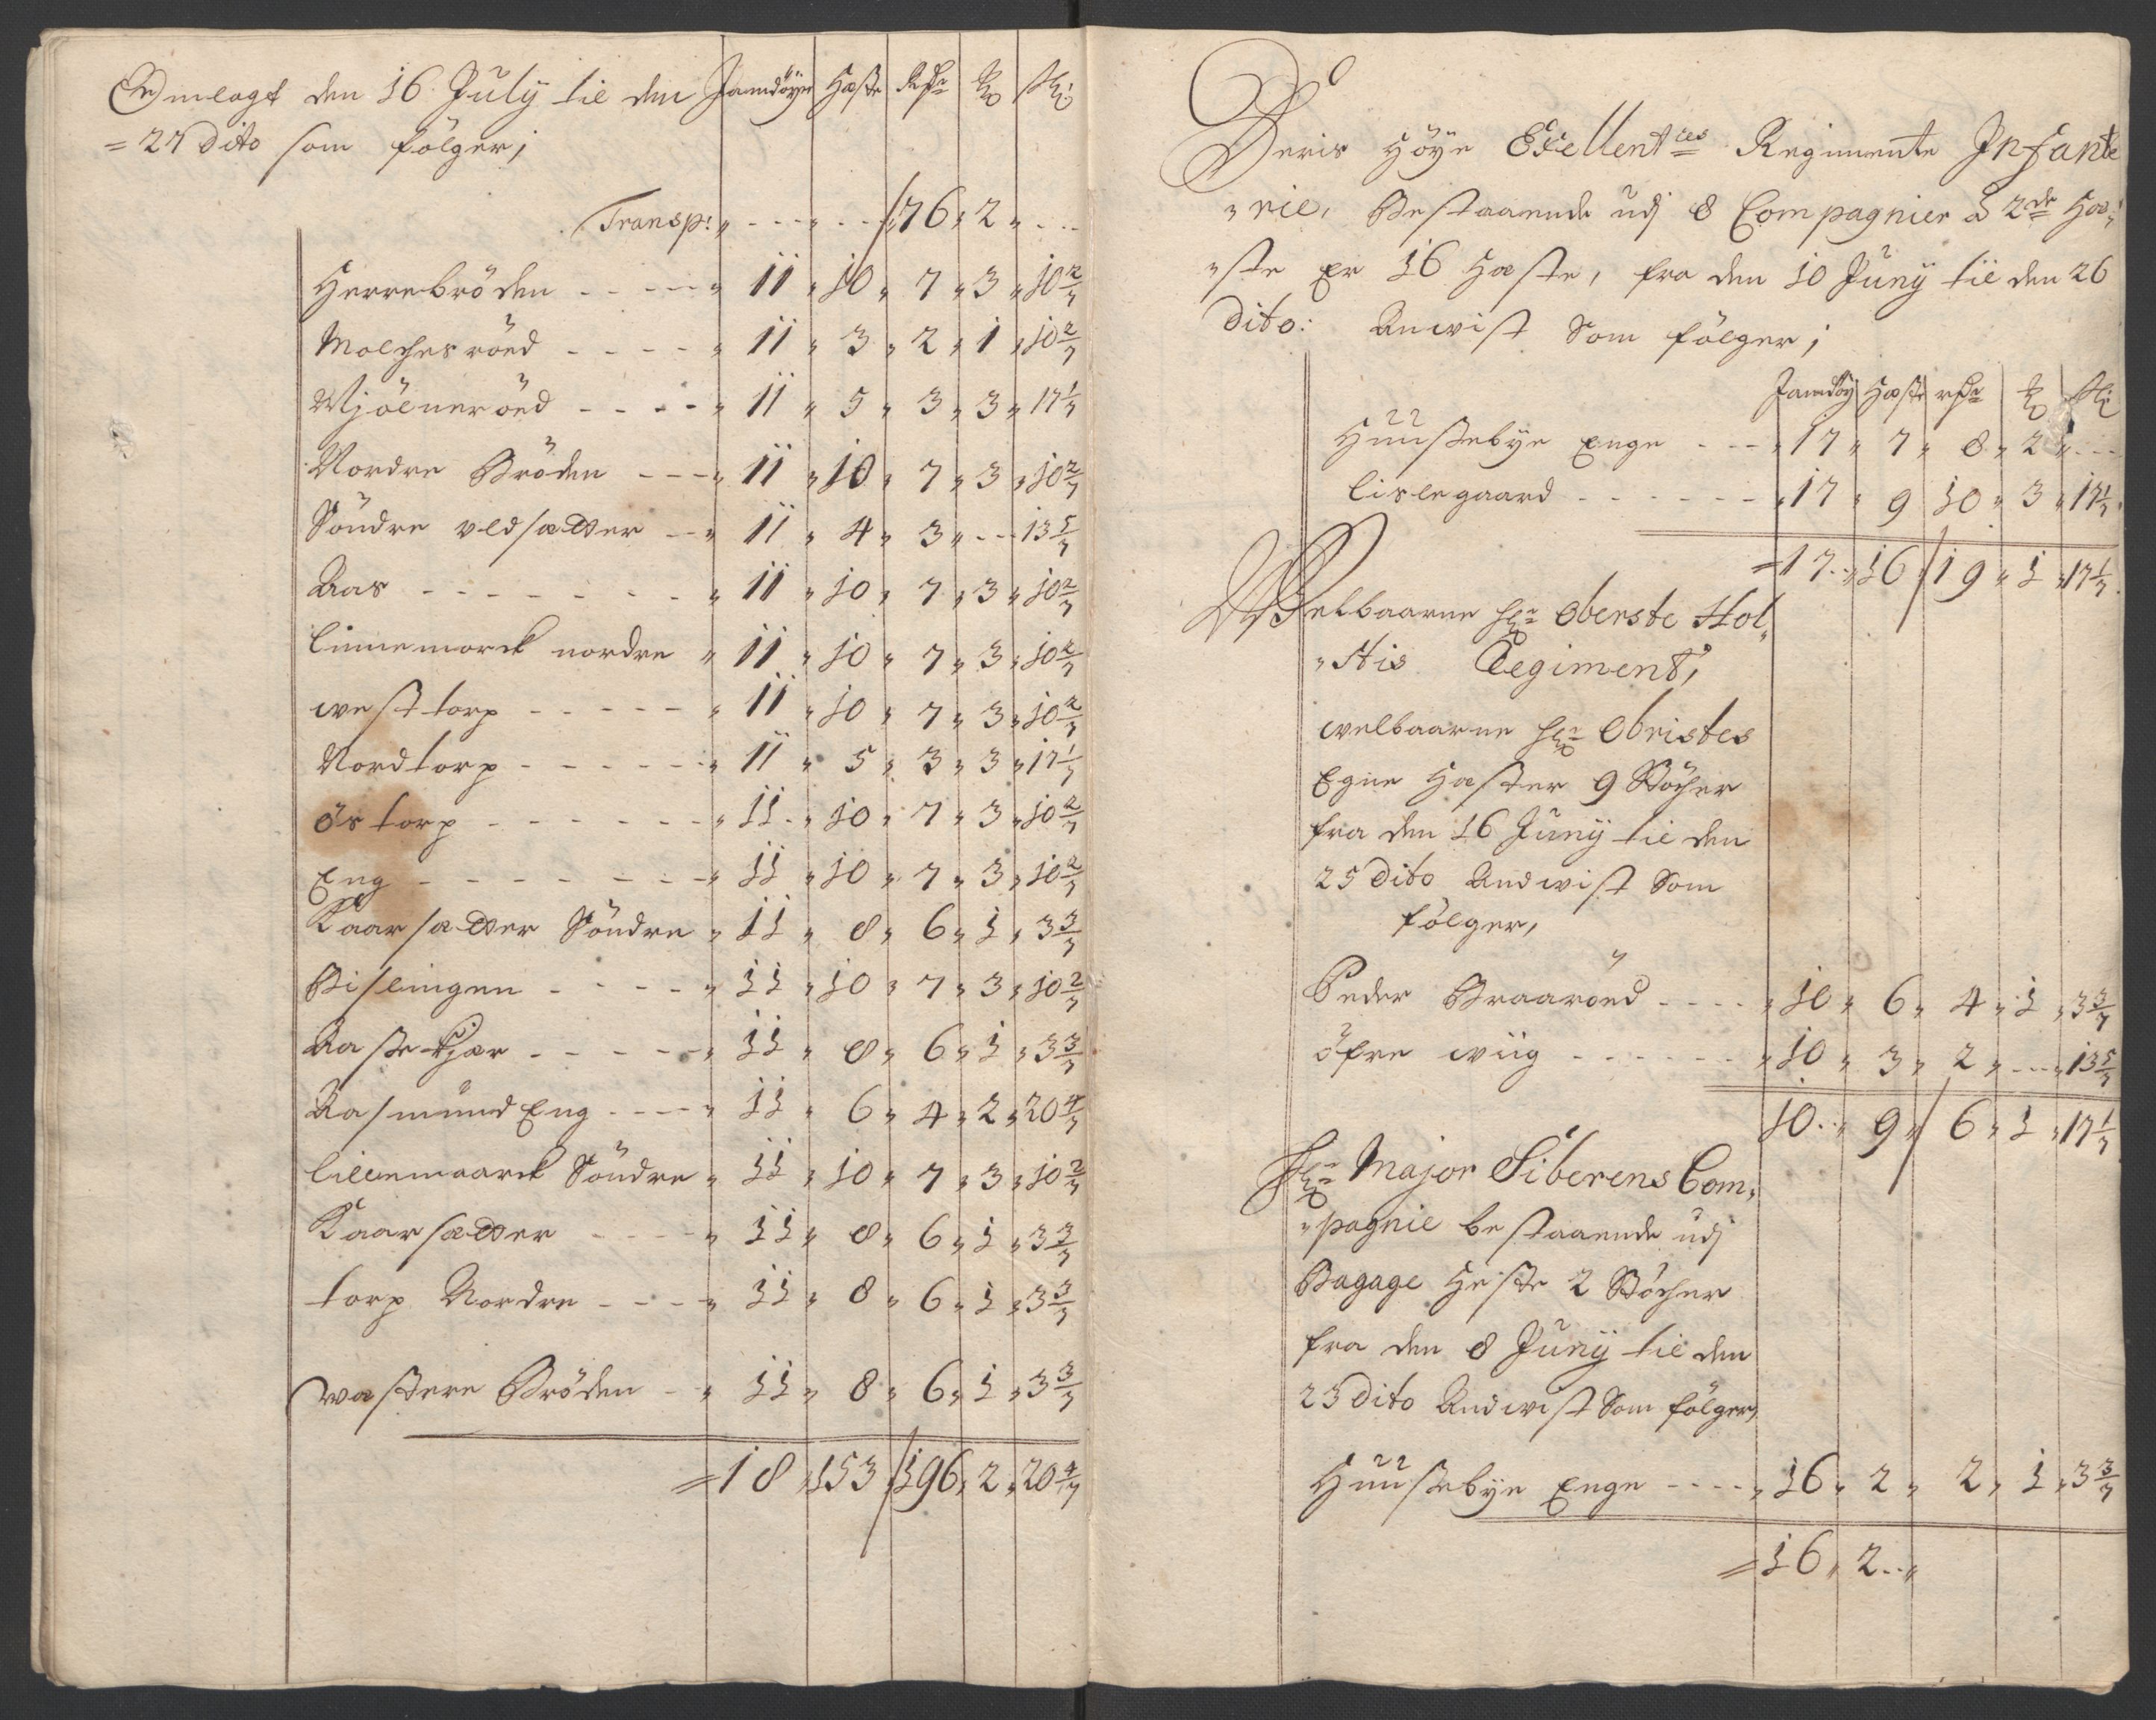 Omlagt den 16 July til den Jamdöyn Hæste Rdr Ort Sk:
= 27 dito som fölger;
Transp: " - - - " - - - 76 " 2 " - -
Herrebröden - - - - " 11 " 10 " 7 " 3 " 10 2/7
Molchesröed - - - - " 11 " 3 " 2 " 1 " 10 2/7
Mjölneröed - - - - " 11 " 5 " 3 " 3 " 17 1/7
Nordre Bröden - - - " 11 " 10 " 7 " 3 " 10 2/7
Söndre vedsætter - - " 11 " 4 " 3 " - - 13 5/7
Aas - - - - - - - " 11 " 10 " 7 " 3 " 10 2/7
linnemorck nordre " 11 " 10 " 7 " 3 " 10 2/7
westtorp - - - - - " 11 " 10 " 7 " 3 " 10 2/7
Nordtorp - - - - - " 11 " 5 " 3 " 3 " 17 1/7
östorp - - - - - - " 11 " 10 " 7 " 3 " 10 2/7
Eng - - - - - - - " 11 " 10 " 7 " 3 " 10 2/7
Kaarsætter Söndre " 11 " 8 " 6 " 1 " 3 3/7
Bislingen - - - - " 11 " 10 " 7 " 3 " 10 2/7
Aastekjær - - - - - " 11 " 8 " 6 " 1 " 3 3/7
Aasmund Eng - - - - " 11 " 6 " 4 " 2 " 20 4/7
lillemaarck Söndre " 11 " 10 " 7 " 3 " 10 2/7
Kaarsætter - - - - " 11 " 8 " 6 " 1 " 3 3/7
torp Nordre - - - " 11 " 8 " 6 " 1 " 3 3/7
wastere Bröden - - " 11 " 8 " 6 " 1 " 3 3/7
= 18 " 153 " 196 " 2 " 20 4/7
Deris Höye Exellentces Regimente Infante
" rie, Bestaaende udj 8 Compagnier à 2de Hæ"
" ste Er 16 Hæste, fra den 10 Juny til den 26
dito: Anvist Som fölger;
Jamdöy Hæste rdr Ort Sk
Huusebye Enge - - - " 17 " 7 " 8 " 2 " - - -
lislegaard - - - - - - " 17 " 9 10 " 3 " 17 1/7
= 17 - " 16 " 19 " 1 " 17 1/7
Welbaarne Hr: Oberste Hol"
" stis Regiment,
welbaarne Hr: Obristes
Egne Hæster 9 Stöcher
fra den 16 Juny til den
25 dito Andvist Som
fölger,
Peder Braaröed - - - - " 10 " 6 " 4 " 1 " 3 3/7
öfre wiig - - - - - - " 10 " 3 " 2 " - - - " 13 5/7
10 - " 9 " 6 " 1 " 17 1/7
Hr: Major Siberens Com"
" pagnie bestaaende udj
Bagage Heste 2 Stöcher
fra den 8 Juny til den
23 dito Andvist Som fölger,
Huusebye Enge - - - - " 16 " 2 " 2 " 1 " 3 3/7
= 16 " 2 - "